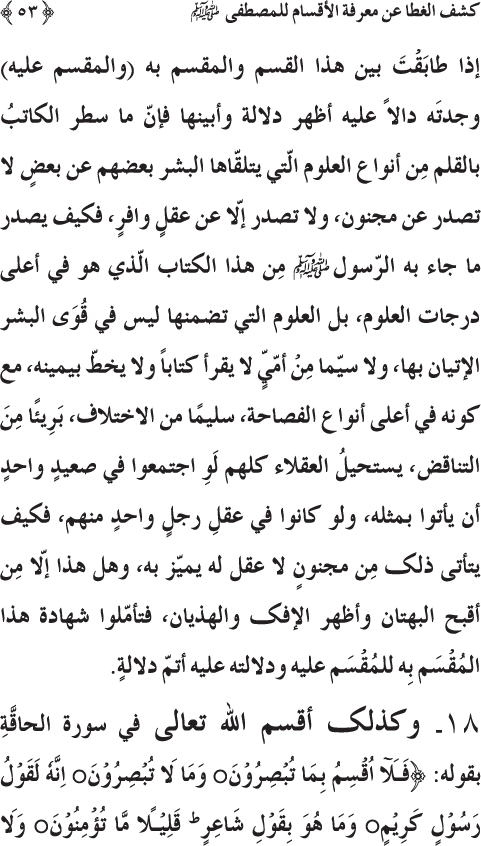 كشف الغطا عن معرفة الأقسام للمصطفى ﷺ ﴿٥٣﴾
إذا طابَقْتَ بين هذا القسم والمقسم به (والمقسم عليه)
وجدتَه دالاً عليه أظهر دلالة وأبينها فإنّ ما سطر الكاتبُ
بالقلم مِن أنواع العلوم الّتي يتلقّاها البشر بعضهم عن بعضٍ لا
تصدر عن مجنون، ولا تصدر إلّا عن عقلٍ وافرٍ، فكيف يصدر
ما جاء به الرّسول ﷺ مِن هذا الكتاب الّذي هو في أعلى
درجات العلوم، بل العلوم التي تضمنها ليس في قُوَى البشر
الإتيان بها، ولا سيّما مِنْ أمّيٍّ لا يقرأ كتاباً ولا يخطّ بيمينه، مع
كونه في أعلى أنواع الفصاحة، سليمًا من الاختلاف، بَرِيئًا مِنَ
التناقض، يستحيلُ العقلاء كلهم لَوِ اجتمعوا في صعيدٍ واحدٍ
أن يأتوا بمثله، ولو كانوا في عقلِ رجلٍ واحدٍ منهم، فكيف
يتأتى ذلك مِن مجنونٍ لا عقل له يميّز به، وهل هذا إلّا مِن
أقبح البهتان وأظهر الإفك والهذيان، فتأمّلوا شهادة هذا
المُقْسَم بِه للمُقْسَم عليه ودلالته عليه أتمّ دلالةٍ.
١٨ـ وكذلك أقسم الله تعالى في سورة الحاقَّةِ
بقوله: ﴿فَلَآ اُقْسِمُ بِمَا تُبْصِرُوْنَ○ وَمَا لَا تُبْصِرُوْنَ○ اِنَّهٗ لَقَوْلُ
رَسُوْلٍ كَرِيْمٍ○ وَمَا هُوَ بِقَوْلِ شَاعِرٍ ؕ قَلِيْلًا مَّا تُؤْمِنُوْنَ○ وَلَا